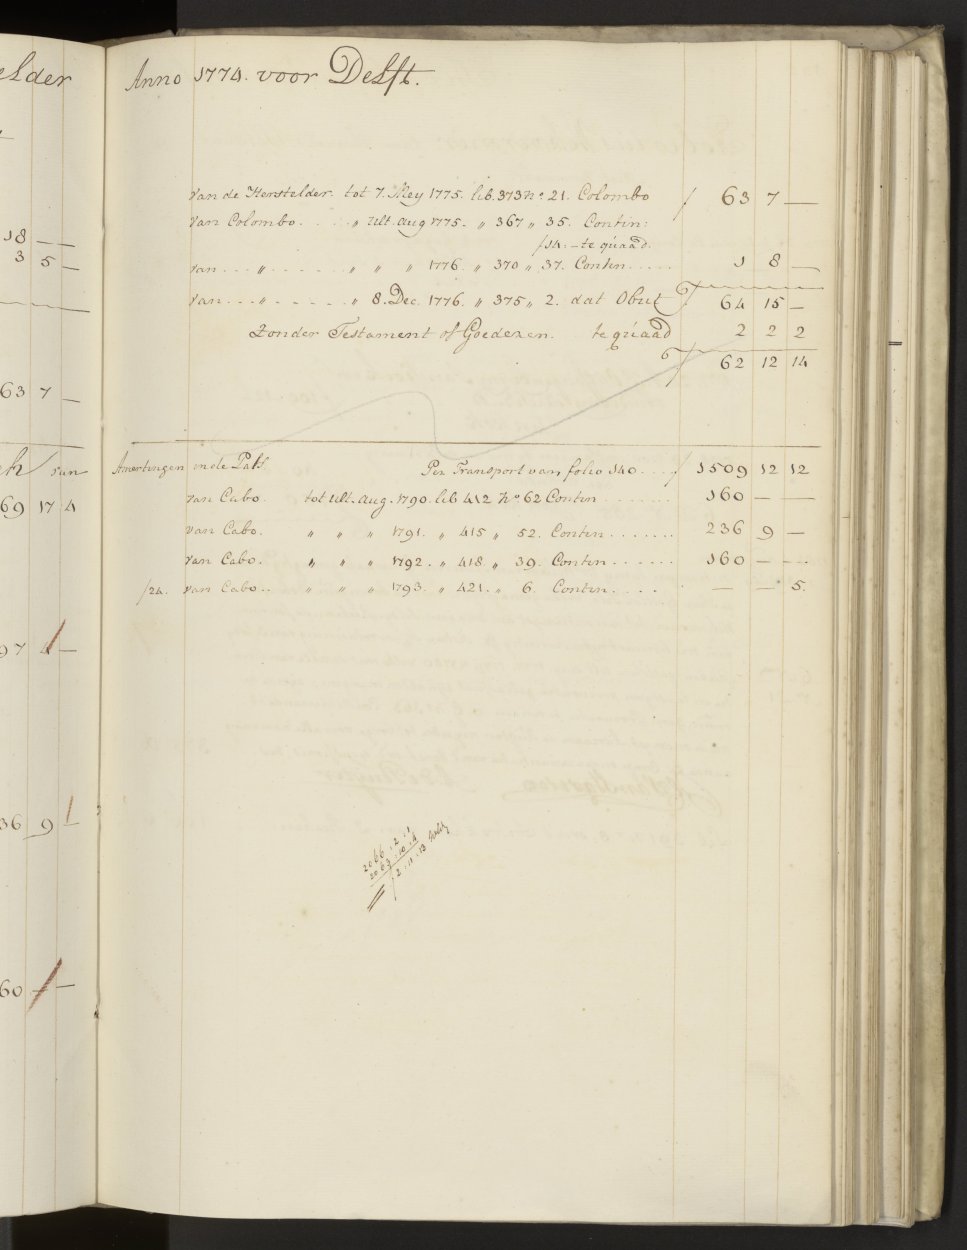 elder
18 — —
3 5 —
63 7 —
69 17 4
97 4 —
36 9 —
60 — —
Anno 1774. voor Delft.
Van de Herstelder. tot 7. Mey 1775. lib. 373 No. 21. Colombo / 63 7 —
Van Colombo. . . . „ ult. aug 1775. „ 367 „ 35. Contin:
/14: – te quaad.
van . . . „ . . . . . . „ „ „ 1776. „ 370 „ 37. Contin. . . . . 1 8 —
van . . . „ . . . . . . „ 8. Dec. 1776. „ 375 „ 2. dat Obiit 64 15 —
Zonder Testament of Goederen. te quaad 2 2 2
62 12 14
in de Pals. Per Transport van folio 140. . . . / 1509 12 12
van Cabo. tot ult. aug. 1790. lib 412 No 62 Contin . . . . . . . 160 — —
van Cabo. „ „ „ 1791. „ 415 „ 52. Contin . . . . . . . 236 9 —
van Cabo. „ „ „ 1792. „ 418 „ 39. Contin . . . . . . 160 — —
/24. van Cabo. . „ „ „ 1793. „ 421. „ 6. Contin. . . . — — 5.
2066 . 2 . 1
2069 . 10 . 4